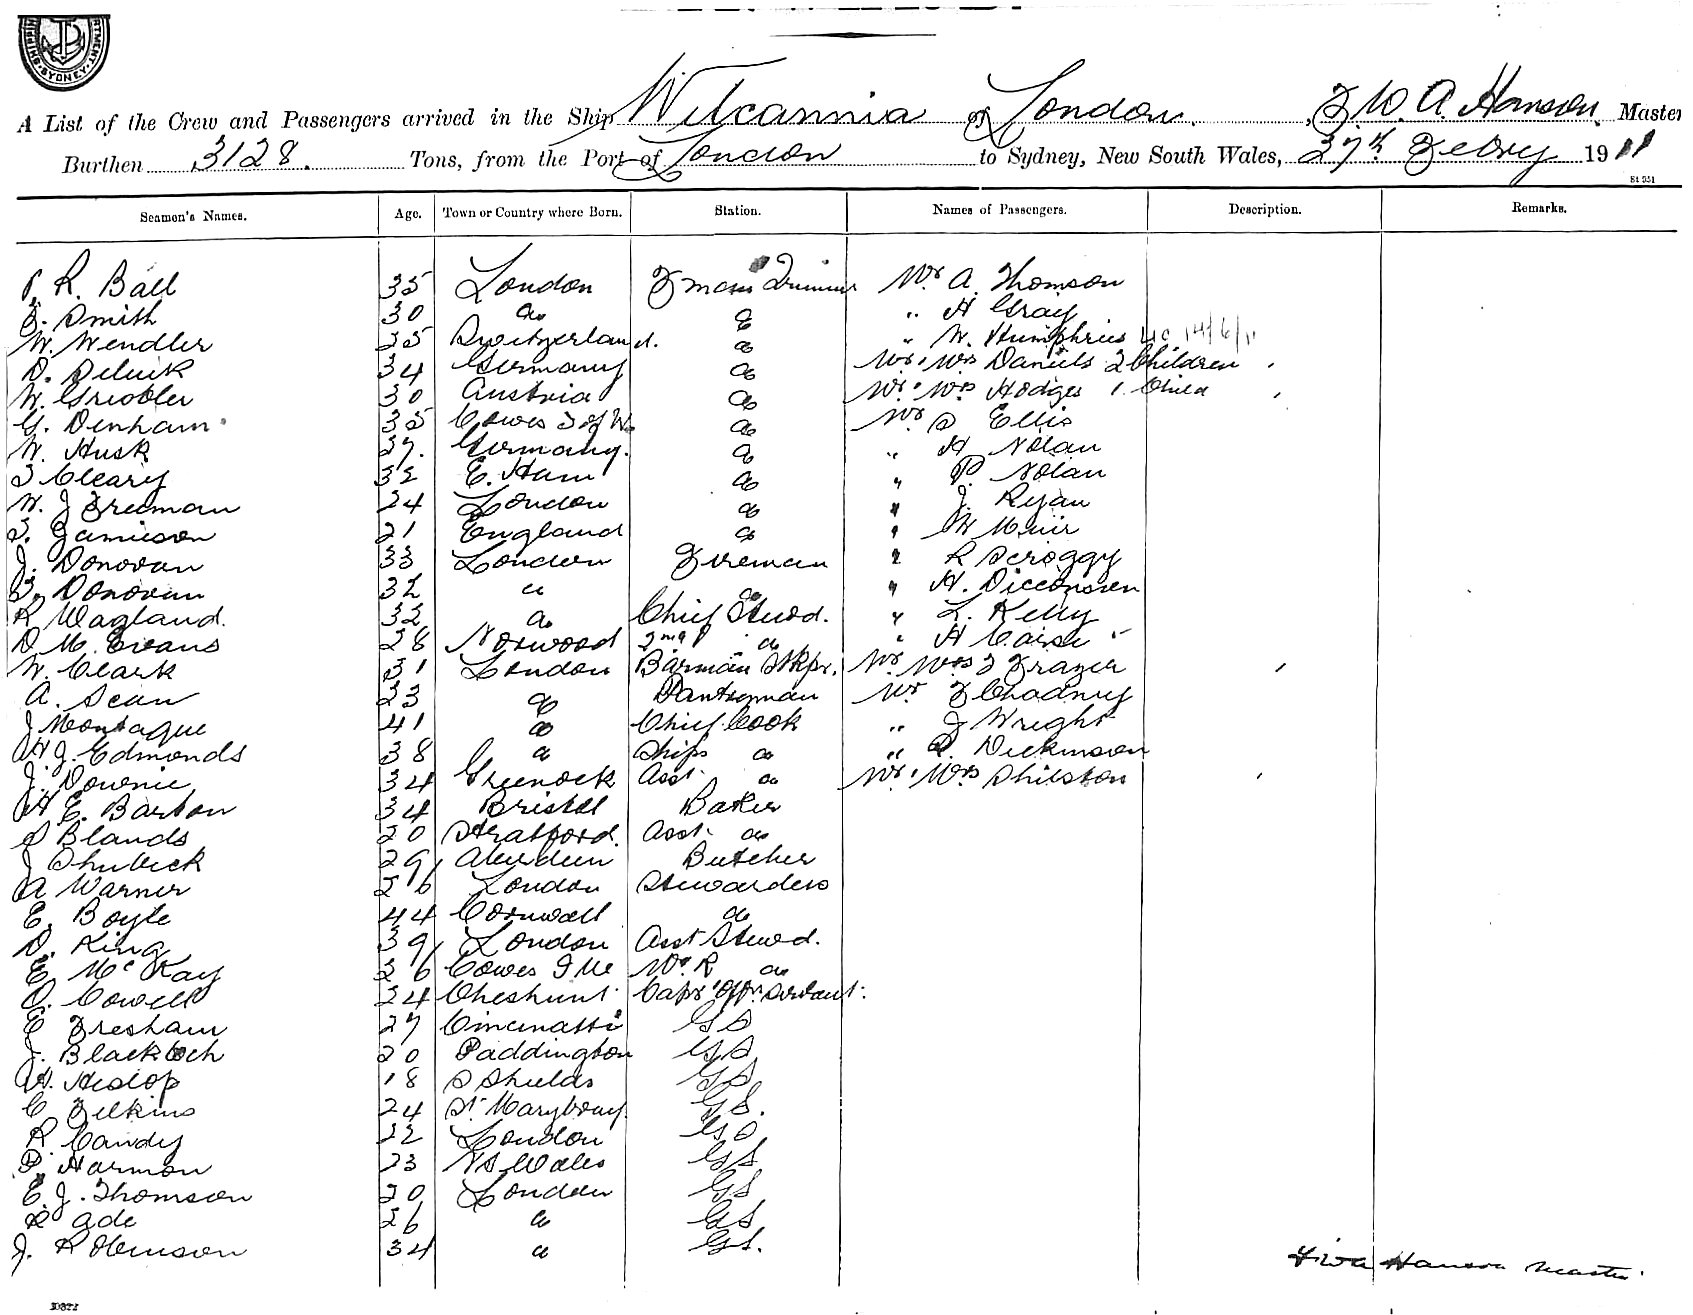 SHIPPING DEPARTMENT. SYDNEY
A List of the Crew and Passengers arrived in the Ship Wilcannia of London, F. W. A. Hanson. Master
Burthen 3128. Tons, from the Port of London to Sydney, New South Wales, 27th Febry 1911
Seamen's Names. Age. Town or Country where Born. Station. Names of Passengers. Description. Remarks.
R. Ball 35 London Fireman Trimmer Mr A. Thomson
Smith 30 do do " H Gray
W. Wendler 25 Switzerland. do " W. Humphries 14/6/11
D. 34 Germany do Mr & Mrs Daniels 2 Children
W. Griobler 30 Austria do Mr & Mrs Hodges 1 Child
G. Denham 35 Cowes I of W. do Mr S Ellis
W. Husk 27. Germany. do " H Nolan
J Cleary 32 E. Ham do " P. Nolan
W. J Freeman 24 London do " J. Ryan
Jamieson 21 England do " W Muir
J. Donovan 33 London Fireman " R Scroggy
Donovan 32 do do " H. Dicconsen
R Wagland. 32 do Chief Stewd. " L. Kelly
D M. Evans 28 Norwood 2nd do " H Caise
W. Clark 31 London Barman Stkpr. Mr Mrs J Frazer
A. Sean 23 do Pantryman Mr F Chadney
J Montague 41 do Chief Cook " J Wright
H. J. Edmonds 38 do Ships do " Dickinson
J. Downie 34 Greenock Asst. do Mr & Mrs Shilston
H E. Barton 34 Bristol Baker
S Blands 20 Stratford. Asst. do
J Shubeck 29 Aberdeen Butcher
A Warner 26 London Stewardess
E. Boyle 44 Cornwall do
D. King 39 London Asst Stewd.
E. McKay 26 Cowes do
O. Cowell 24 Cheshunt Servant.
E Fresham 27 Cincinatti GS
J. Blackloch 20 Paddington GS
H. Heslop 18 S Shields GS
C. Filkins 24 St Marybouy. GS.
R. Candy 22 London GS
P. Harmon 23 N S Wales GS
E. J. Thomson 20 London GS
R Ade 26 do GS
J. Robinson 34 do GS.
Hanson Master